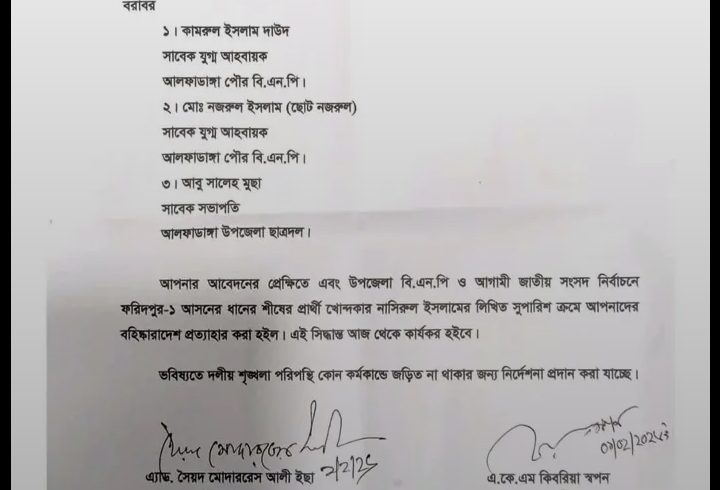 বরাবর
১। কামরুল ইসলাম দাউদ
সাবেক যুগ্ম আহবায়ক
আলফাডাঙ্গা পৌর বি.এন.পি।
২। মোঃ নজরুল ইসলাম (ছোট নজরুল)
সাবেক যুগ্ম আহবায়ক
আলফাডাঙ্গা পৌর বি.এন.পি।
৩। আবু সালেহ মুছা
সাবেক সভাপতি
আলফাডাঙ্গা উপজেলা ছাত্রদল।
আপনার আবেদনের প্রেক্ষিতে এবং উপজেলা বি.এন.পি ও আগামী জাতীয় সংসদ নির্বাচনে
ফরিদপুর-১ আসনের ধানের শীষের প্রার্থী খোন্দকার নাসিরুল ইসলামের লিখিত সুপারিশ ক্রমে আপনাদের
বহিষ্কারাদেশ প্রত্যাহার করা হইল। এই সিদ্ধান্ত আজ থেকে কার্যকর হইবে।
ভবিষ্যতে দলীয় শৃঙ্খলা পরিপন্থি কোন কর্মকান্ডে জড়িত না থাকার জন্য নির্দেশনা প্রদান করা যাচ্ছে।
সৈয়দ মোদাররেস আলী
এ্যাড. সৈয়দ মোদাররেস আলী ইছা
এ.কে.এম কিবরিয়া স্বপন